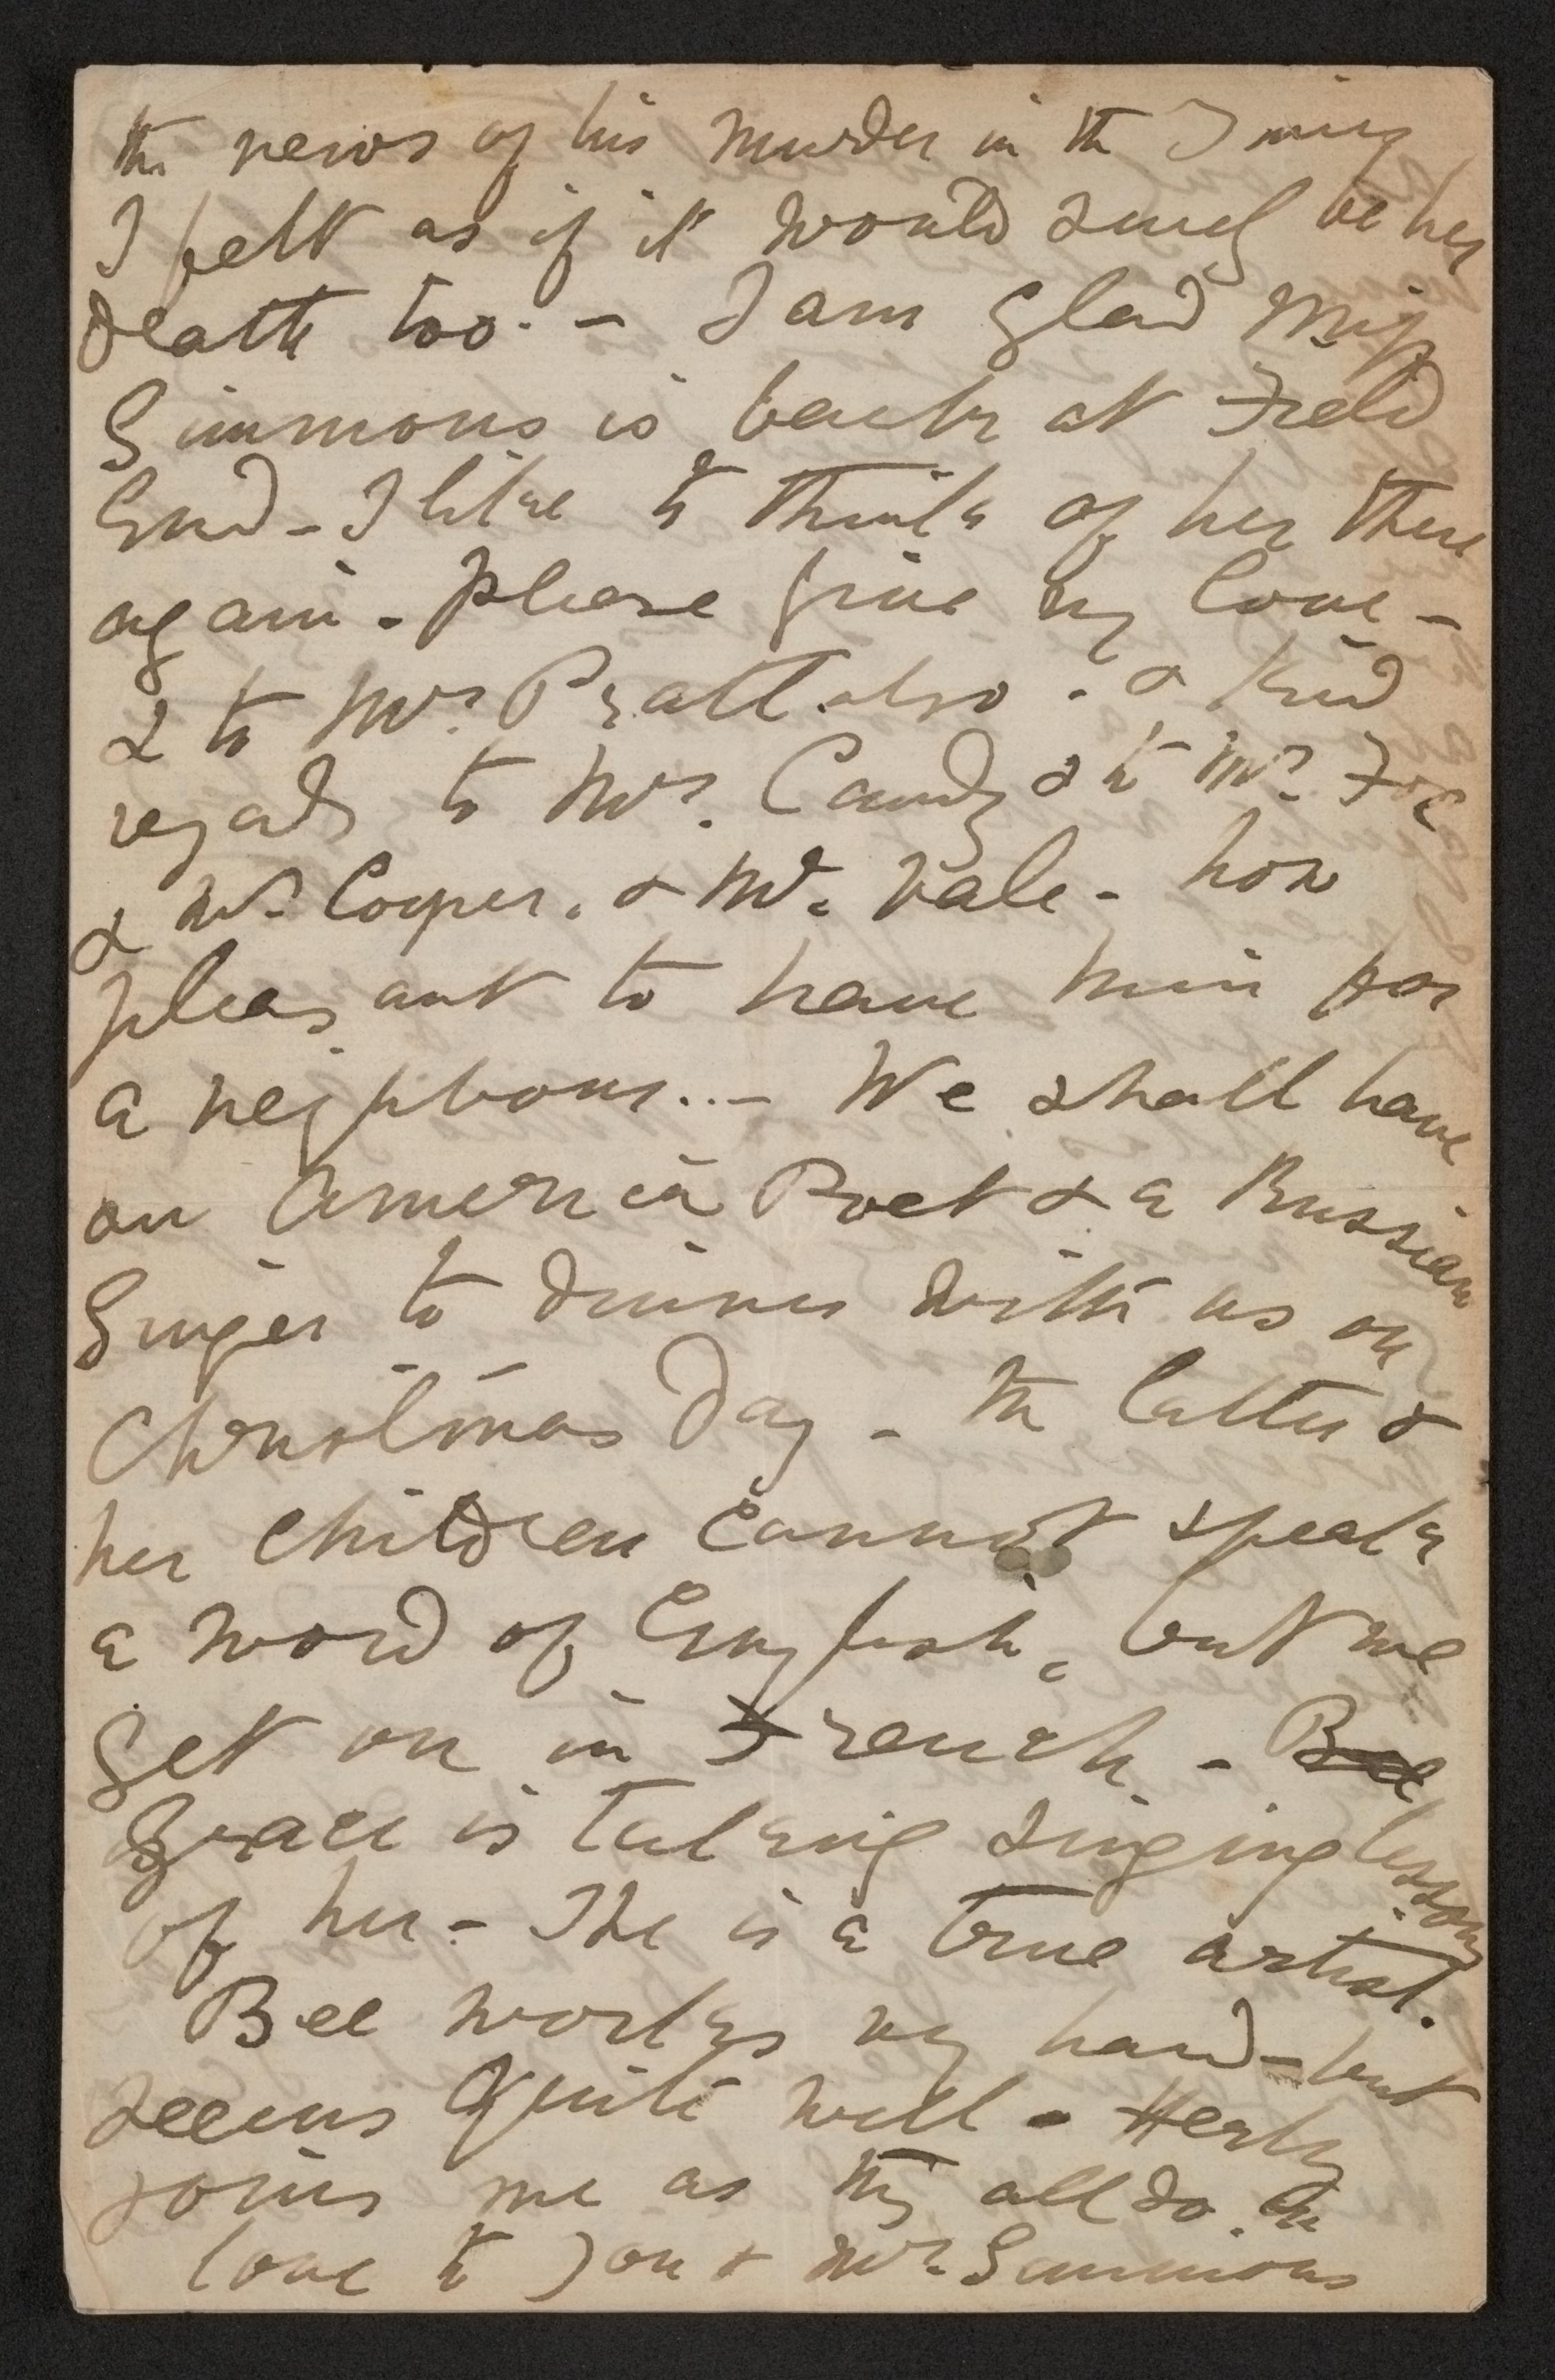 the news of his murder in the Times
I felt as if it would surely be her
death too. – I am glad Miss
Simmons is back at Field
End – I like to think of her there
again. Please give my love –
& to Mrs. Pratt also. & kind
regards to Mrs. Candy & to Mrs. Fox
& Mrs. Cooper, & Mr. Vale – how
pleasant to have him for
a neighbour... – We shall have
an American Poet & a Russian
Singer to dinner with us on
Christmas Day – the latter &
her children cannot speak
a word of English, but we
get on in French. – Bee
Grace is taking singing lessons
of her – She is a true artist.
Bee works very hard – but
seems quite well – Herby
joins me as they all do in
love to you & Mrs. Simmons